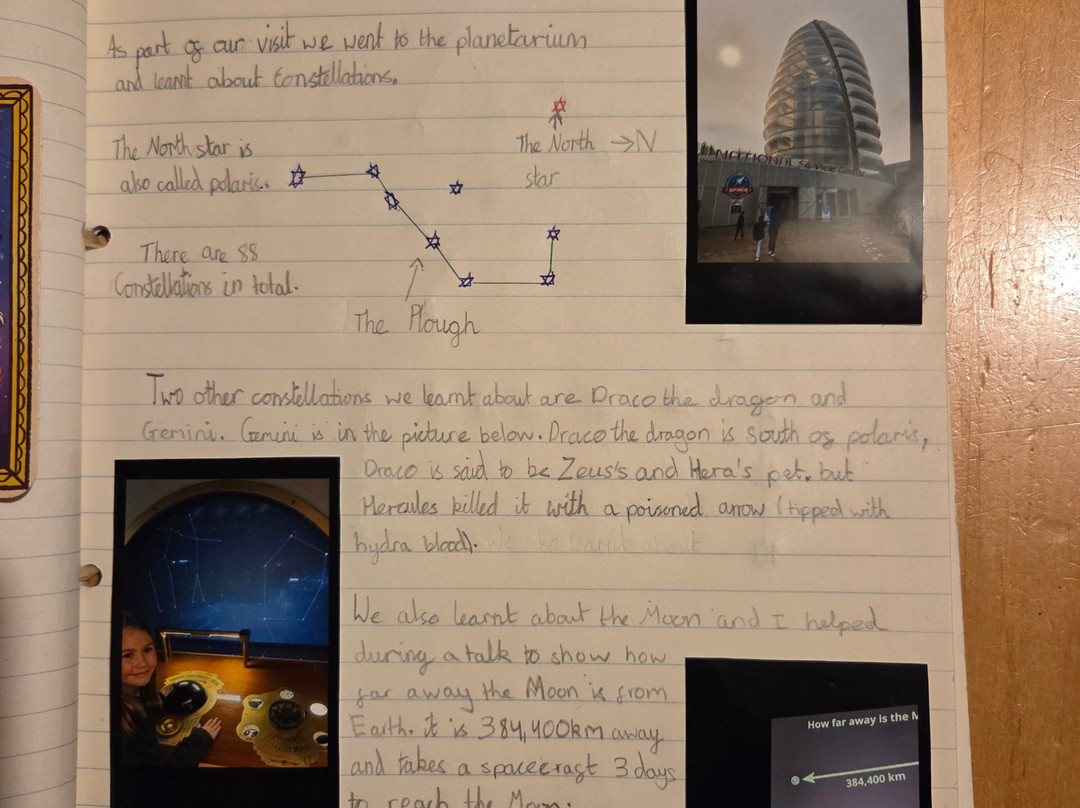 As part of our visit we went to the planetarium
and learnt about Constellations.
The North star is
also called polaris.
The North → N
star
There are 88
Constellations in total.
The Plough
NATIONAL SPACE
SPACE
Two other constellations we learnt about are Draco the dragon and
Gemini. Gemini is in the picture below. Draco the dragon is south of polaris,
Draco is said to be Zeus's and Hera's pet. but
Hercules killed it with a poisoned arrow (tipped with
hydra blood).
We also learnt about the Moon and I helped
during a talk to show how
far away the Moon is from
Earth. it is 384,400km away
and takes a spacecraft 3 days
to reach the Moon.
How far away is the M
384,400 km